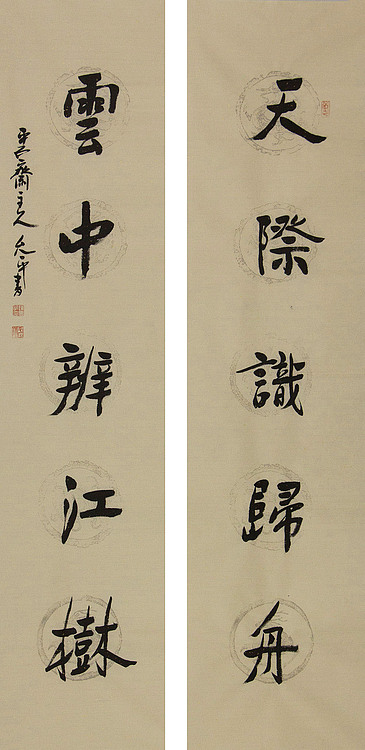 天際識歸舟
雲中辨江樹
齋主人
書